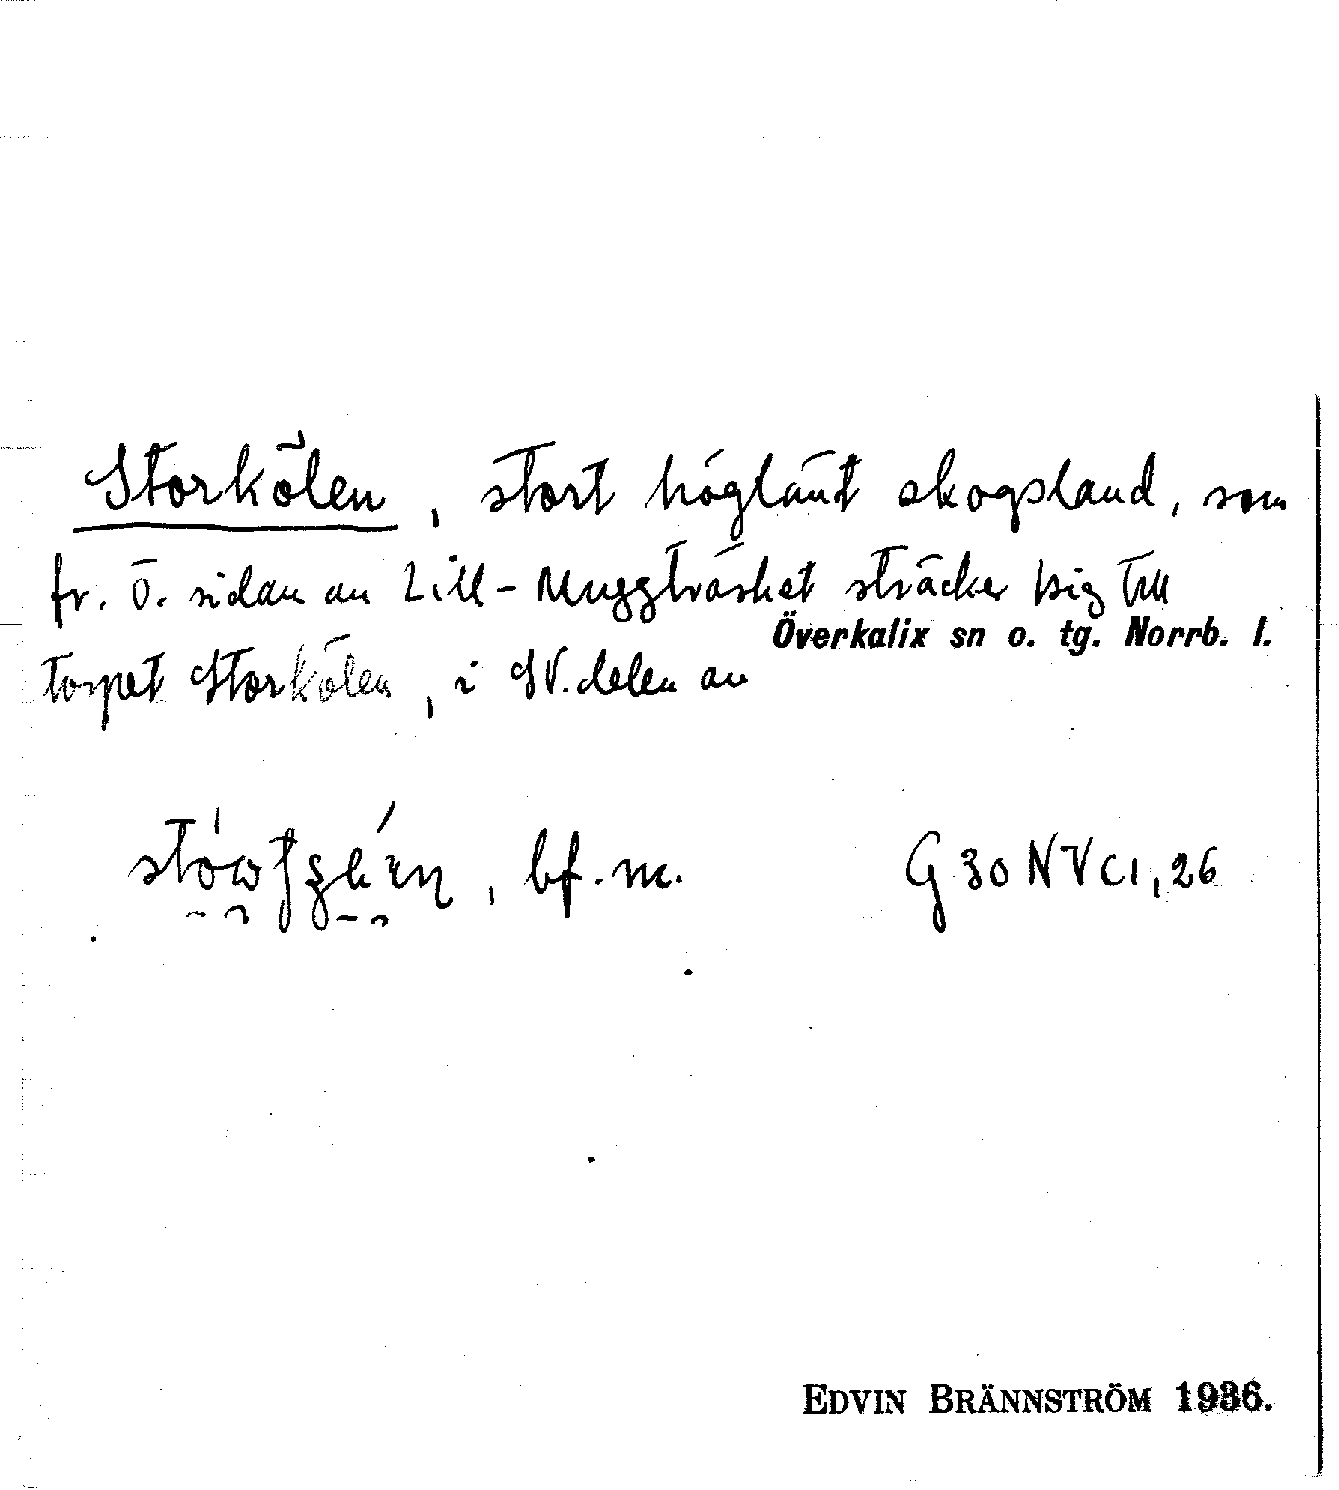 Storkölen, stort höglänt skogsland, som
fr. ö. sidan av Lill-Muggträsket sträcker sig till
Överkalix sn o. tg. Norrb. l.
torpet Storkölen, i SV. delen av
bf. m. G 30 NV c1, 26
EDVIN BRÄNNSTRÖM 1936.